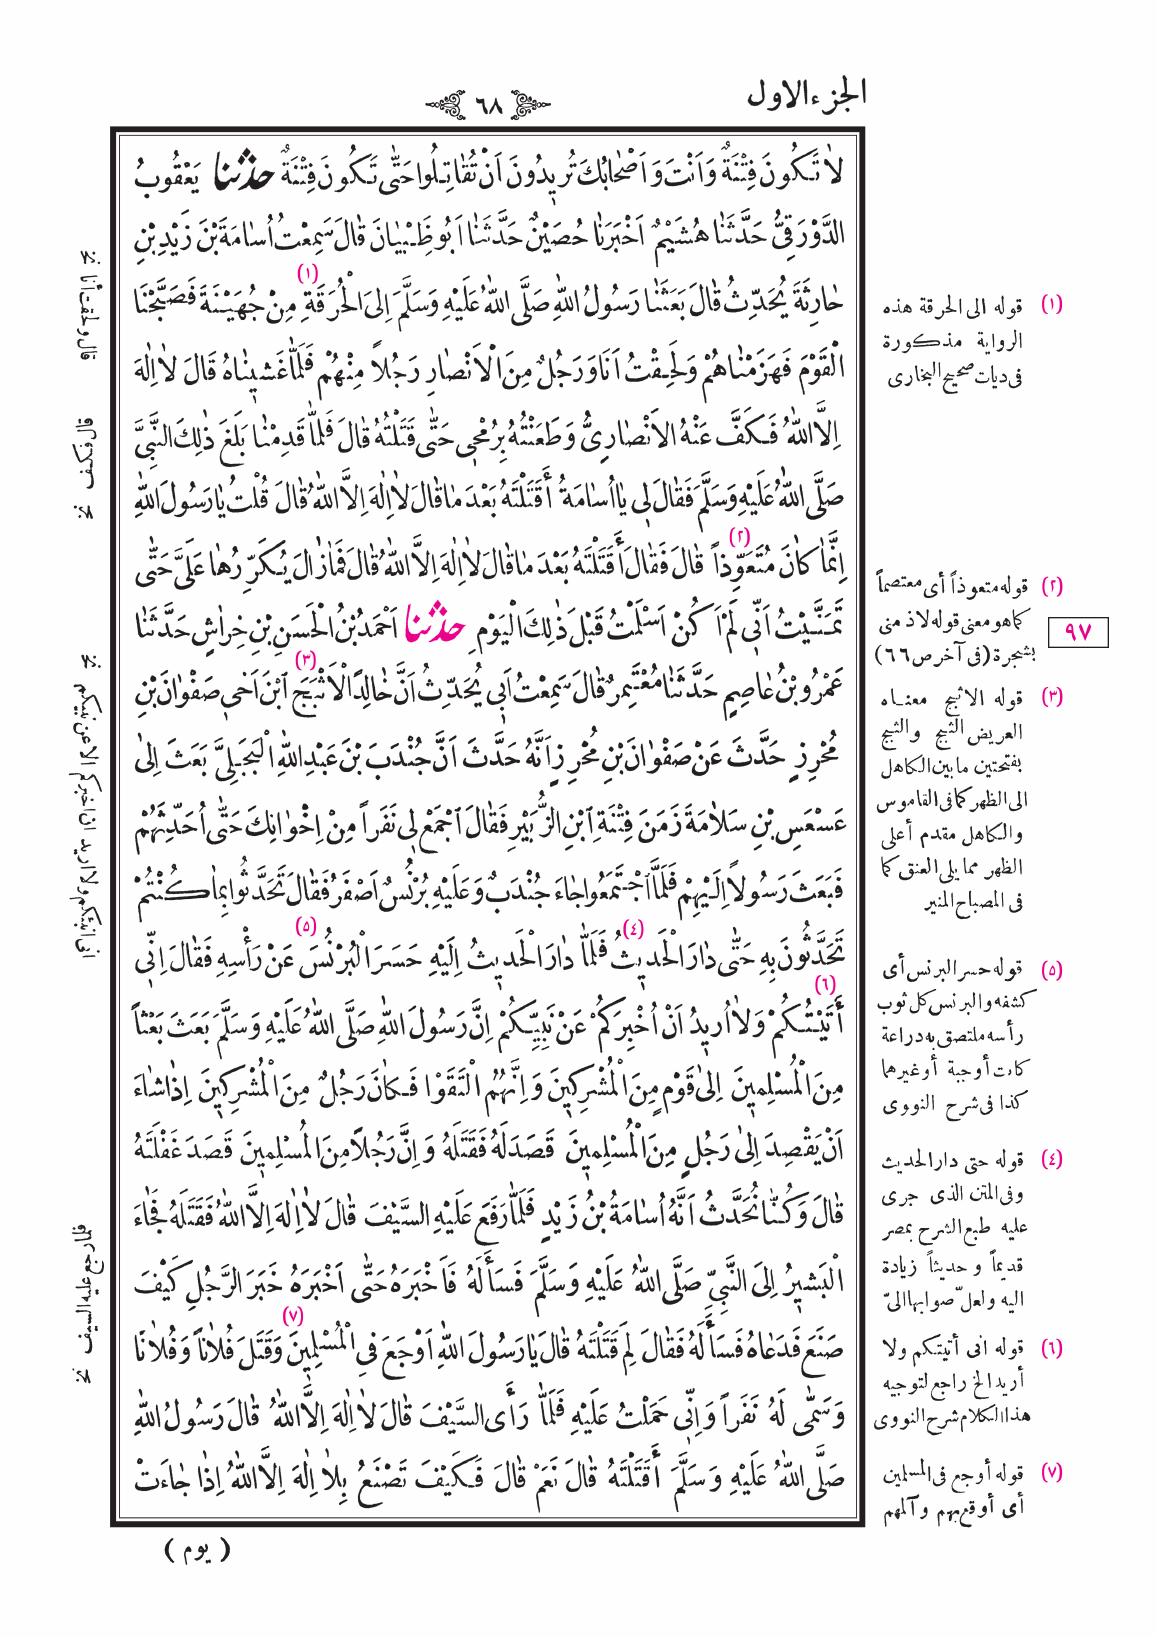 الجزء الاول
٦٨
لَا تَكُونَ فِتْنَةٌ وَاَنْتَ وَاَصْحَابُكَ تُرِيدُونَ اَنْ تُقَاتِلُوا حَتّٰى تَكُونَ فِتْنَةٌ حدثنا يَعْقُوبُ
الدَّوْرَقِيُّ حَدَّثَنَا هُشَيْمٌ اَخْبَرَنَا حُصَيْنٌ حَدَّثَنَا اَبُو ظَبْيَانَ قَالَ سَمِعْتُ اُسَامَةَ بْنَ زَيْدِ بْنِ
حَارِثَةَ يُحَدِّثُ قَالَ بَعَثَنَا رَسُولُ اللّٰهِ صَلَّى اللّٰهُ عَلَيْهِ وَسَلَّمَ اِلَى الْحُرَقَةِ (١) مِنْ جُهَيْنَةَ فَصَبَّحْنَا
الْقَوْمَ فَهَزَمْنَاهُمْ وَلَحِقْتُ اَنَا وَرَجُلٌ مِنَ الْاَنْصَارِ رَجُلاً مِنْهُمْ فَلَمَّا غَشِينَاهُ قَالَ لَا اِلٰهَ
اِلَّا اللّٰهُ فَكَفَّ عَنْهُ الْاَنْصَارِيُّ وَطَعَنْتُهُ بِرُمْحِي حَتّٰى قَتَلْتُهُ قَالَ فَلَمَّا قَدِمْنَا بَلَغَ ذٰلِكَ النَّبِيَّ
صَلَّى اللّٰهُ عَلَيْهِ وَسَلَّمَ فَقَالَ لِي يَا اُسَامَةُ أَقَتَلْتَهُ بَعْدَ مَا قَالَ لَا اِلٰهَ اِلَّا اللّٰهُ قَالَ قُلْتُ يَا رَسُولَ اللّٰهِ
اِنَّمَا كَانَ مُتَعَوِّذاً (٢) قَالَ فَقَالَ أَقَتَلْتَهُ بَعْدَ مَا قَالَ لَا اِلٰهَ اِلَّا اللّٰهُ قَالَ فَمَا زَالَ يُكَرِّرُهَا عَلَيَّ حَتّٰى
تَمَنَّيْتُ اَنِّي لَمْ اَكُنْ اَسْلَمْتُ قَبْلَ ذٰلِكَ الْيَوْمِ حدثنا اَحْمَدُ بْنُ الْحَسَنِ بْنِ خِرَاشٍ حَدَّثَنَا
عَمْرُو بْنُ عَاصِمٍ حَدَّثَنَا مُعْتَمِرٌ قَالَ سَمِعْتُ اَبِي يُحَدِّثُ اَنَّ خَالِداً الْاَثْبَجَ (٣) ابْنَ اَخِي صَفْوَانَ بْنِ
مُحْرِزٍ حَدَّثَ عَنْ صَفْوَانَ بْنِ مُحْرِزٍ اَنَّهُ حَدَّثَ اَنَّ جُنْدَبَ بْنَ عَبْدِ اللّٰهِ الْبَجَلِيَّ بَعَثَ اِلٰى
عَسْعَسِ بْنِ سَلَامَةَ زَمَنَ فِتْنَةِ ابْنِ الزُّبَيْرِ فَقَالَ اجْمَعْ لِي نَفَراً مِنْ اِخْوَانِكَ حَتّٰى اُحَدِّثَهُمْ
فَبَعَثَ رَسُولاً اِلَيْهِمْ فَلَمَّا اجْتَمَعُوا جَاءَ جُنْدَبٌ وَعَلَيْهِ بُرْنُسٌ اَصْفَرُ فَقَالَ تَحَدَّثُوا بِمَا كُنْتُمْ
تَحَدَّثُونَ بِهِ حَتّٰى دَارَ الْحَدِيثُ (٤) فَلَمَّا دَارَ الْحَدِيثُ اِلَيْهِ حَسَرَ الْبُرْنُسَ (٥) عَنْ رَأْسِهِ فَقَالَ اِنِّي
أَتَيْتُكُمْ (٦) وَلَا اُرِيدُ اَنْ اُخْبِرَكُمْ عَنْ نَبِيِّكُمْ اِنَّ رَسُولَ اللّٰهِ صَلَّى اللّٰهُ عَلَيْهِ وَسَلَّمَ بَعَثَ بَعْثاً
مِنَ الْمُسْلِمِينَ اِلٰى قَوْمٍ مِنَ الْمُشْرِكِينَ وَاِنَّهُمُ الْتَقَوْا فَكَانَ رَجُلٌ مِنَ الْمُشْرِكِينَ اِذَا شَاءَ
اَنْ يَقْصِدَ اِلٰى رَجُلٍ مِنَ الْمُسْلِمِينَ قَصَدَ لَهُ فَقَتَلَهُ وَاِنَّ رَجُلاً مِنَ الْمُسْلِمِينَ قَصَدَ غَفْلَتَهُ
قَالَ وَكُنَّا نُحَدَّثُ اَنَّهُ اُسَامَةُ بْنُ زَيْدٍ فَلَمَّا رَفَعَ عَلَيْهِ السَّيْفَ قَالَ لَا اِلٰهَ اِلَّا اللّٰهُ فَقَتَلَهُ فَجَاءَ
الْبَشِيرُ اِلَى النَّبِيِّ صَلَّى اللّٰهُ عَلَيْهِ وَسَلَّمَ فَسَأَلَهُ فَاَخْبَرَهُ حَتّٰى اَخْبَرَهُ خَبَرَ الرَّجُلِ كَيْفَ
صَنَعَ فَدَعَاهُ فَسَأَلَهُ فَقَالَ لِمَ قَتَلْتَهُ قَالَ يَا رَسُولَ اللّٰهِ اَوْجَعَ فِي الْمُسْلِمِينَ (٧) وَقَتَلَ فُلَاناً وَفُلَانًا
وَسَمّٰى لَهُ نَفَراً وَاِنِّي حَمَلْتُ عَلَيْهِ فَلَمَّا رَأَى السَّيْفَ قَالَ لَا اِلٰهَ اِلَّا اللّٰهُ قَالَ رَسُولُ اللّٰهِ
صَلَّى اللّٰهُ عَلَيْهِ وَسَلَّمَ أَقَتَلْتَهُ قَالَ نَعَمْ قَالَ فَكَيْفَ تَصْنَعُ بِلَا اِلٰهَ اِلَّا اللّٰهُ اِذَا جَاءَتْ
( يوم )
(١) قوله الى الحرقة هذه
الرواية مذكورة
فى ديات صحيح البخارى
(٢) قوله متعوذاً أى معتصماً
كما هو معنى قوله لاذ منى
بشجرة (فى آخر ص ٦٦)
٩٧
(٣) قوله الاثبج معناه
العريض الثبج والثبج
بفتحتين ما بين الكاهل
الى الظهر كما فى القاموس
والكاهل مقدم أعلى
الظهر مما يلى العنق كما
فى المصباح المنير
(٥) قوله حسر البرنس أى
كشفه والبرنس كل ثوب
رأسه ملتصق به دراعة
كانت أو جبة أو غيرها
كذا فى شرح النووى
(٤) قوله حتى دار الحديث
وفى المتن الذى جرى
عليه طبع الشرح بمصر
قديماً وحديثاً زيادة
اليه ولعلّ صوابها الىّ
(٦) قوله انى أتيتكم ولا
أريد الخ راجع لتوجيه
هذا الكلام شرح النووى
(٧) قوله أوجع فى المسلمين
أى أوقع بهم وآلمهم
قال ولحقت أنا نخ
قال فكف نخ
انى اتيتكم ولا اريد ان اخبركم الا عن نبيكم نخ
فلما رجع عليه السيف نخ